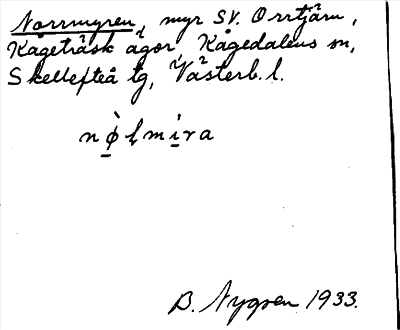 Norrmyren, myr SV. Orrtjärn,
Kågeträsk ägor, Kågedalens sn,
Skellefteå tg, Västerb. l.
nø̀lmira
B. Nygren 1933.